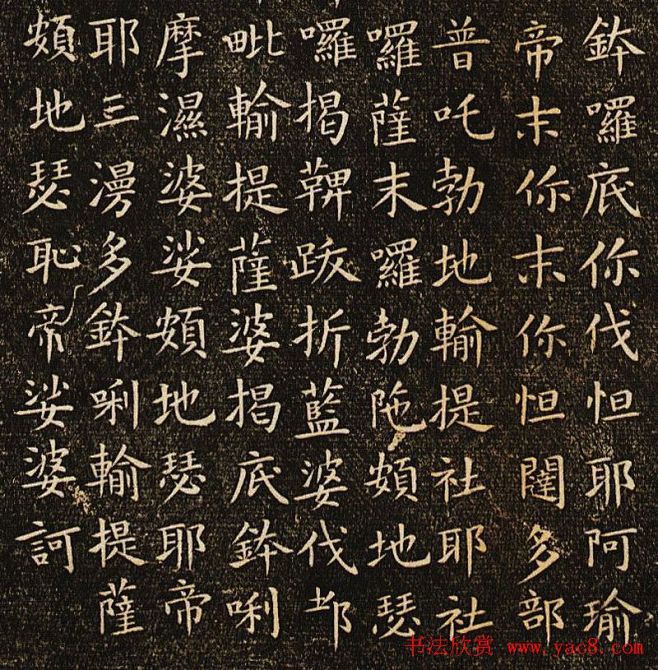 鉢囉底你伐怛耶阿瑜
帝末你末你怛闥多部
普吒勃地輸提社耶社
囉薩末囉勃陁頞地瑟
囉揭鞞跋折藍婆伐
毗輸提薩婆揭底鉢唎
摩濕婆娑頞地瑟耶帝
耶三漫多鉢唎輸提薩
頞地瑟恥帝娑婆訶
书法欣赏 www.yac8.com